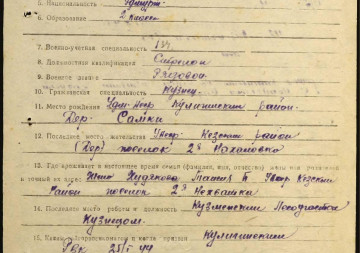 5. Национальность удмурт.
6. Образование 2 класса
7. Военно-учетная специальность 134
8. Должностная квалификация Стрелок
9. Военное звание Рядовой
10. Гражданская специальность Кузнец.
11. Место рождения Удм-Аср Кулигинский район.
Дер. Самки
12. Последнее место жительства Увср. Кезский район
(дер) поселок 2й
13. Где проживает в настоящее время семья (фамилия, имя, отчество) жены или родителей
и точный их адрес Жена Худякова П Увср Кезский
район поселок 2й
14. Последнее место работы и должность Кузменский
Кузнецом
15. Каким Райвоенкоматом и когда призван Кулигинским
РВК 25/I 44